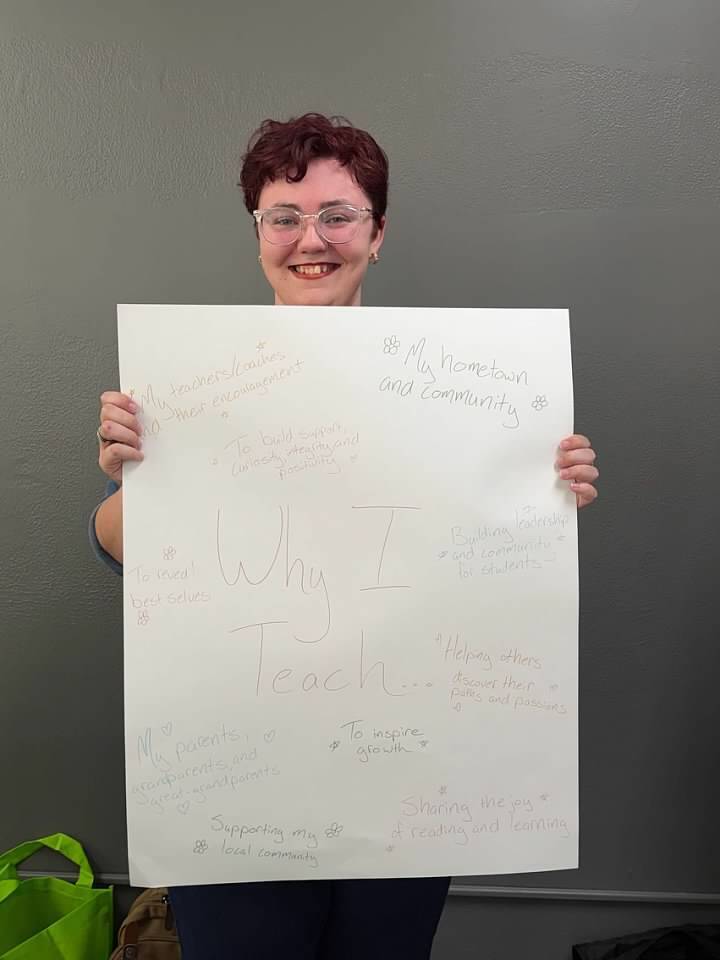 My teachers/coaches
and their encouragement
My hometown
and community
To build support,
curiosity, integrity, and
positivity
Why I
Teach...
Building leadership
and community
for students
To reveal
best selves
Helping others
discover their
paths and passions
My parents,
grandparents, and
great-grandparents
To inspire
growth
Sharing the joy
of reading and learning
Supporting my
local community